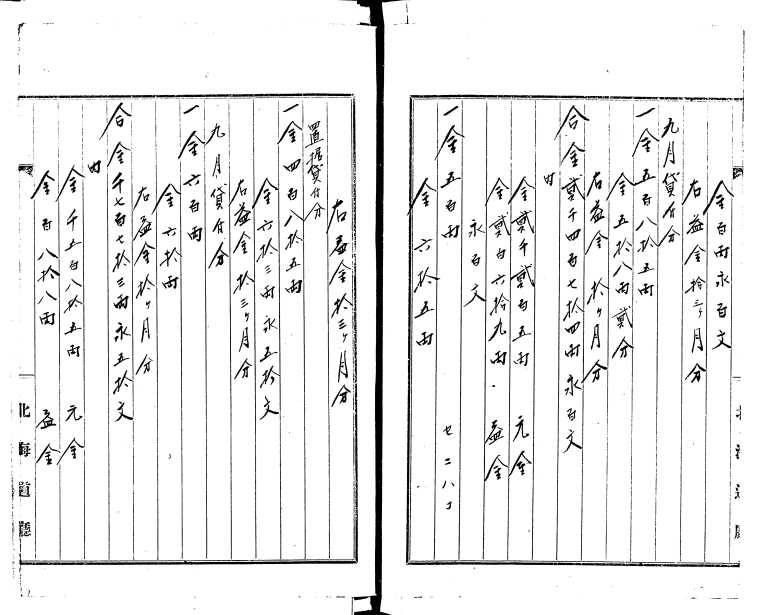 金百両永百文
右益金拾三ヶ月分
九月貸付分
一金五百八拾五両
金五拾八両貳分
右益金拾ヶ月分
合金貳千四百七拾四両永百文
内
金貳千貳百五両 元金
金貳百六拾九両 益金
永百文
一金五百両
金六拾五両
右益金拾三ヶ月分
置据貸付分
一金四百八拾五両
金六拾三両永五拾文
右益金拾三ヶ月分
九月貸付分
一金六百両
金六拾両
右益金拾ヶ月分
合金千七百七拾三両永五拾文
内
金千五百八拾五両 元金
金百八拾八両 益金
北海道廳